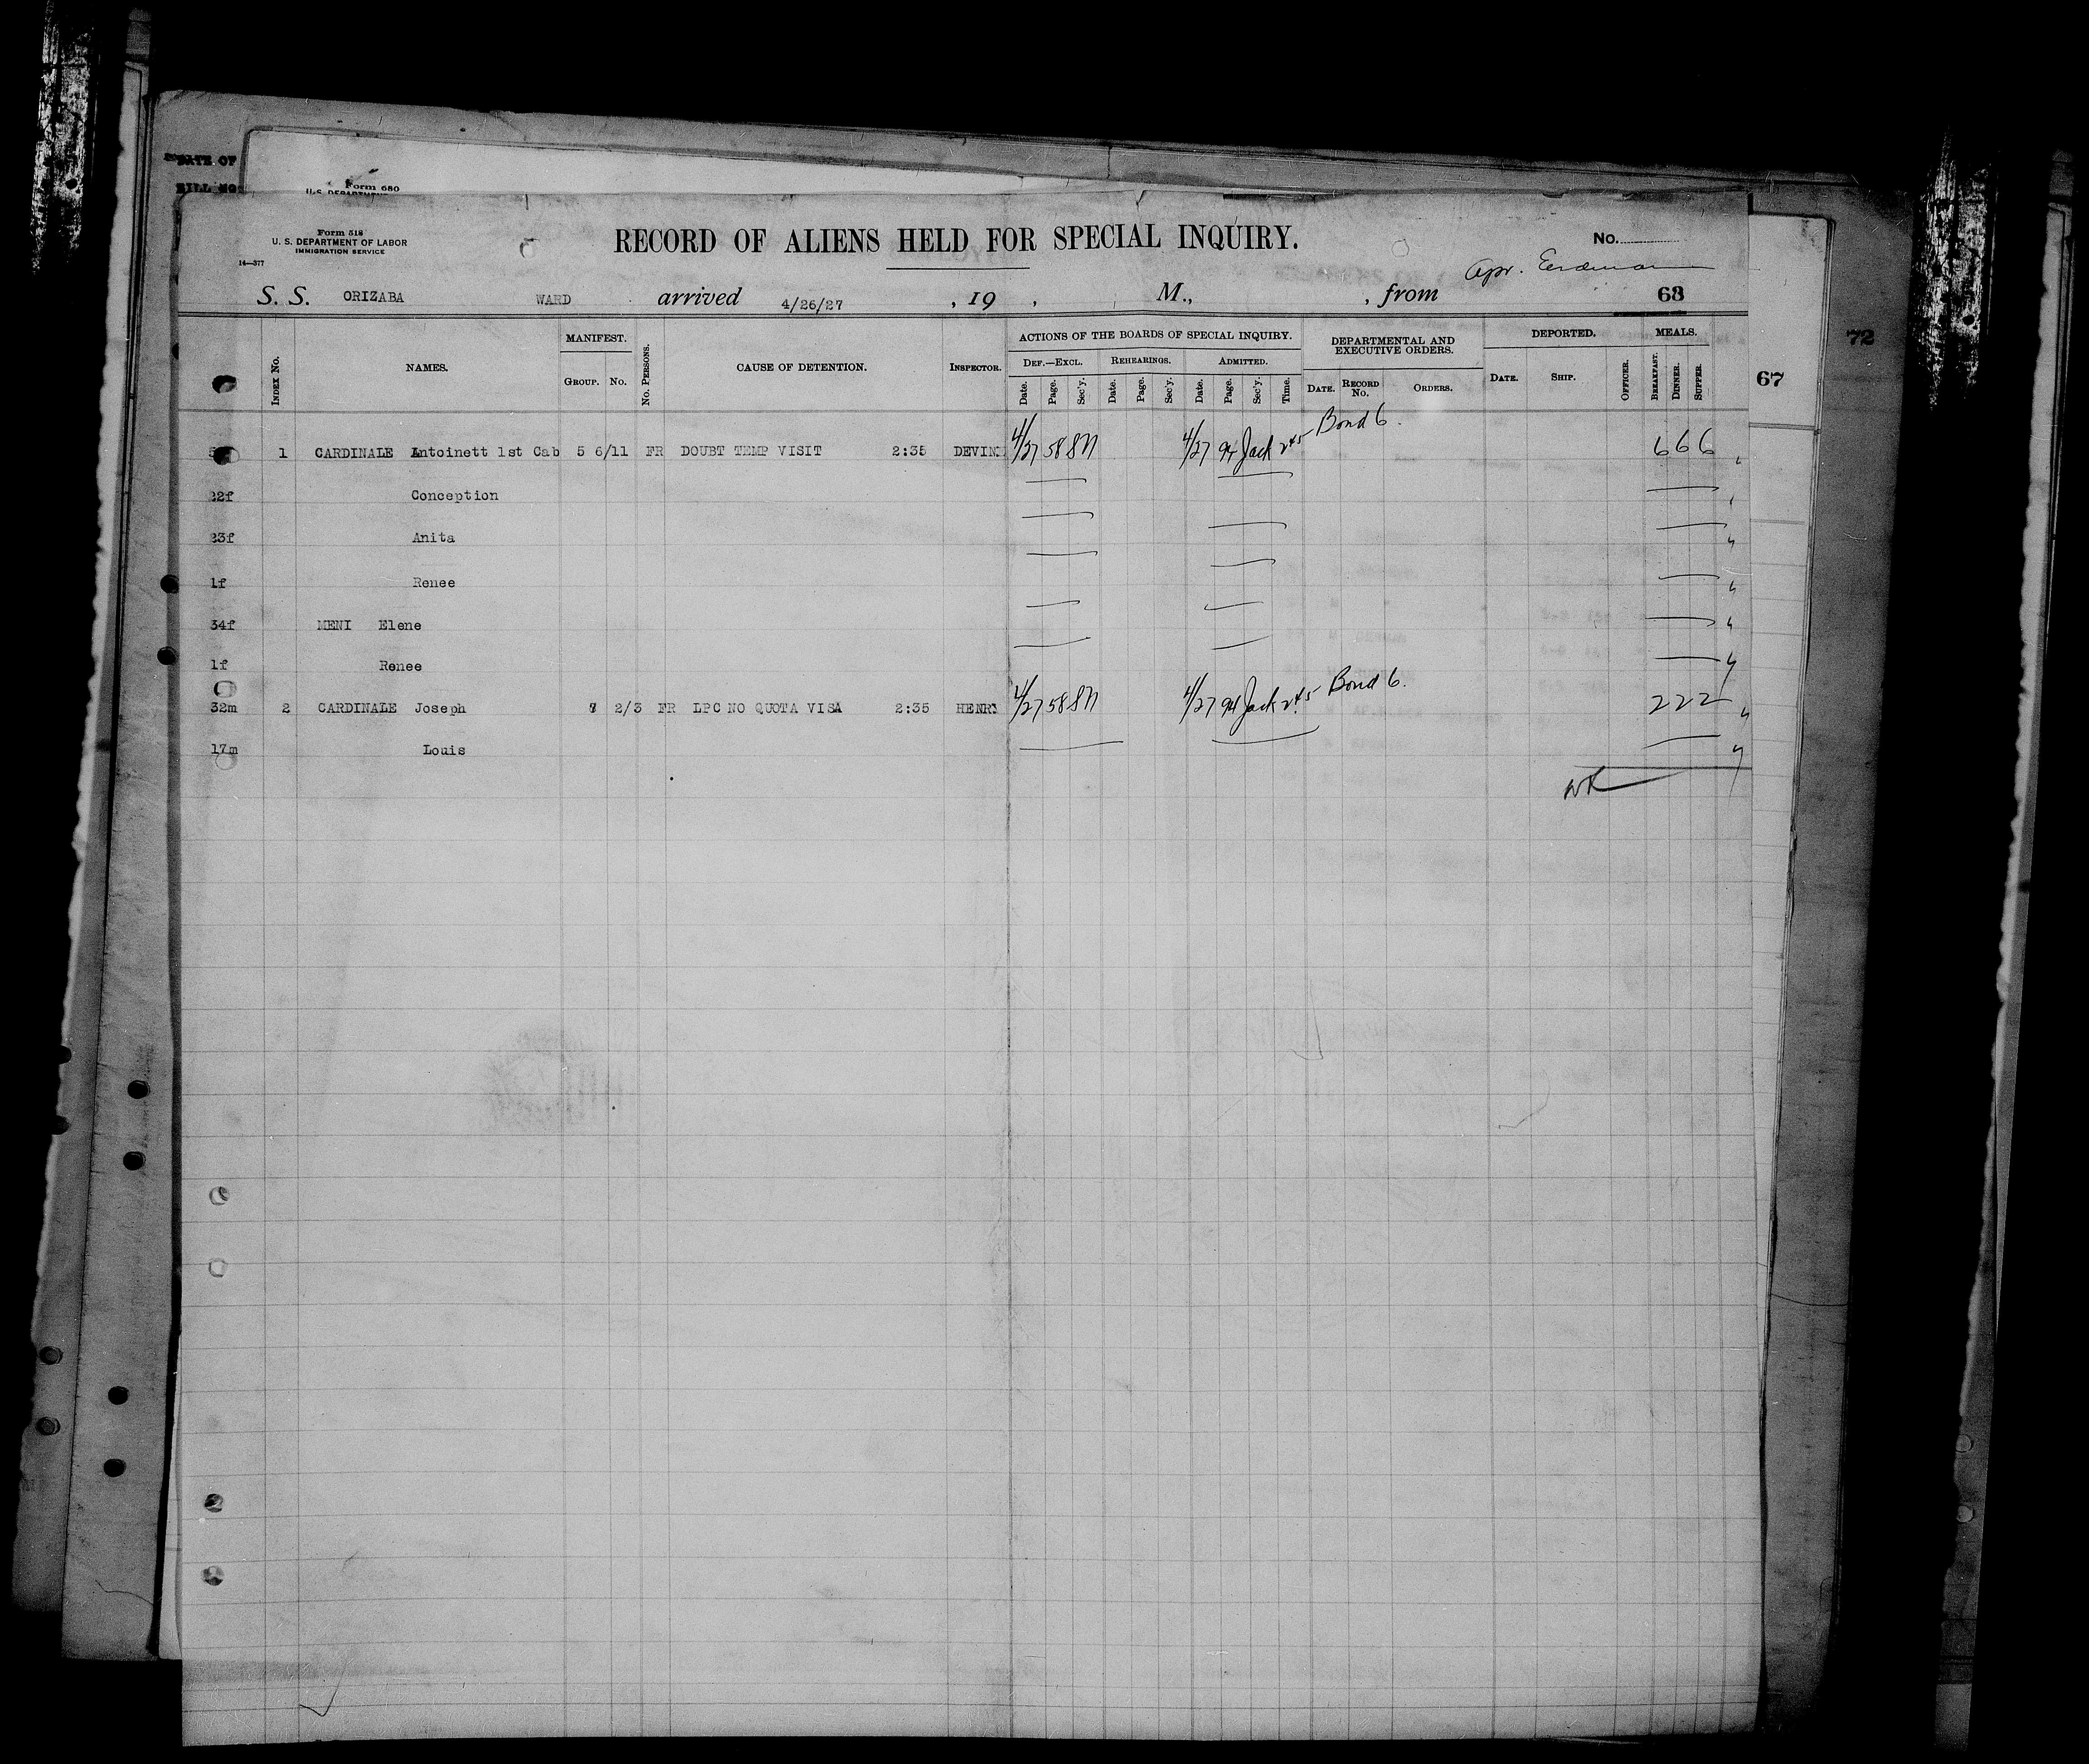 DATE OF
BILL NO
Form 680
U.S. DEPARTMENT
Form 518
U. S. DEPARTMENT OF LABOR
IMMIGRATION SERVICE
14—377
RECORD OF ALIENS HELD FOR SPECIAL INQUIRY.
No.
S. S. ORIZABA WARD arrived 4/26/27 , 19 , M., , from 68
72
67
INDEX No. NAMES. MANIFEST. GROUP. No. No. PERSONS. CAUSE OF DETENTION. INSPECTOR. ACTIONS OF THE BOARDS OF SPECIAL INQUIRY. DEPARTMENTAL AND EXECUTIVE ORDERS. DEPORTED. MEALS.
DEF.—EXCL. REHEARINGS. ADMITTED.
Date. Page. Sec'y. Date. Page. Sec'y. Date. Page. Sec'y. Time. DATE. RECORD No. ORDERS. DATE. SHIP. OFFICER. BREAKFAST. DINNER. SUPPER.
1 CARDINALE Antoinett 1st Cab 5 6/11 FR DOUBT TEMP VISIT 2:35 DEVIN 4/27 58 SN 4/27 94 Jack 245 Bond 6. 6 6 6
22f Conception
23f Anita
1f Renee
34f MENI Elene
1f Renee
32m 2 CARDINALE Joseph 7 2/3 FR LPC NO QUOTA VISA 2:35 HENRY 4/27 58 SN 4/27 94 Jack 245 Bond 6. 2 2 2
17m Louis